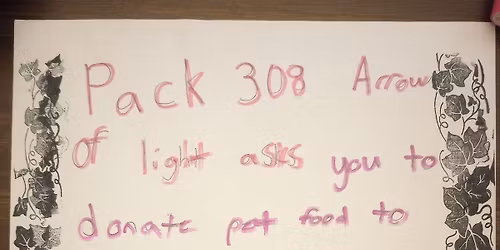 Pack 308 Arrow
of light asks you to
donate pet food to